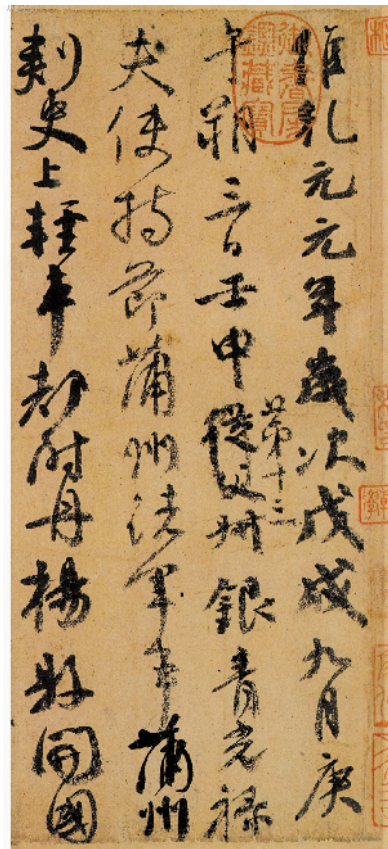 維乾元元年歲次戊戌九月庚
午朔三日壬申從父叔銀青光祿
第十三
夫使持節蒲州諸軍事蒲州
刺史上輕車都尉丹楊縣開國
御書房鑑藏寶